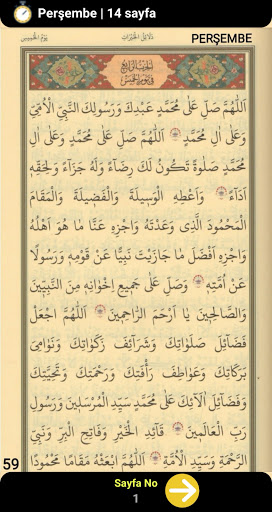 Perşembe | 14 sayfa
يَوْمُ الْخَمِيسِ
دَلَائِلُ الْخَيْرَاتِ
PERŞEMBE
اَلْحِزْبُ الرَّابِعُ
فِي يَوْمِ الْخَمِيسِ
اَللّٰهُمَّ صَلِّ عَلٰى مُحَمَّدٍ عَبْدِكَ وَرَسُولِكَ النَّبِيِّ الْاُمِّيِّ
وَعَلٰى اٰلِ مُحَمَّدٍ اَللّٰهُمَّ صَلِّ عَلٰى مُحَمَّدٍ وَعَلٰى اٰلِ
مُحَمَّدٍ صَلٰوةً تَكُونُ لَكَ رِضَاءً وَلَهُ جَزَاءً وَلِحَقِّهِ
اَدَاءً وَاَعْطِهِ الْوَسِيلَةَ وَالْفَضِيلَةَ وَالْمَقَامَ
الْمَحْمُودَ الَّذِي وَعَدْتَهُ وَاجْزِهِ عَنَّا مَا هُوَ اَهْلُهُ
وَاجْزِهِ اَفْضَلَ مَا جَازَيْتَ نَبِيًّا عَنْ قَوْمِهِ وَرَسُولًا
عَنْ اُمَّتِهِ وَصَلِّ عَلٰى جَمِيعِ اِخْوَانِهِ مِنَ النَّبِيِّينَ
وَالصَّالِحِينَ يَا اَرْحَمَ الرَّاحِمِينَ اَللّٰهُمَّ اجْعَلْ
فَضَائِلَ صَلَوَاتِكَ وَشَرَائِفَ زَكَوَاتِكَ وَنَوَامِيَ
بَرَكَاتِكَ وَعَوَاطِفَ رَأْفَتِكَ وَرَحْمَتِكَ وَتَحِيَّتِكَ
وَفَضَائِلَ اٰلَائِكَ عَلٰى مُحَمَّدٍ سَيِّدِ الْمُرْسَلِينَ وَرَسُولِ
رَبِّ الْعَالَمِينَ قَائِدِ الْخَيْرِ وَفَاتِحِ الْبِرِّ وَنَبِيِّ
الرَّحْمَةِ وَسَيِّدِ الْاُمَّةِ اَللّٰهُمَّ ابْعَثْهُ مَقَامًا مَحْمُودًا
59
Sayfa No
1